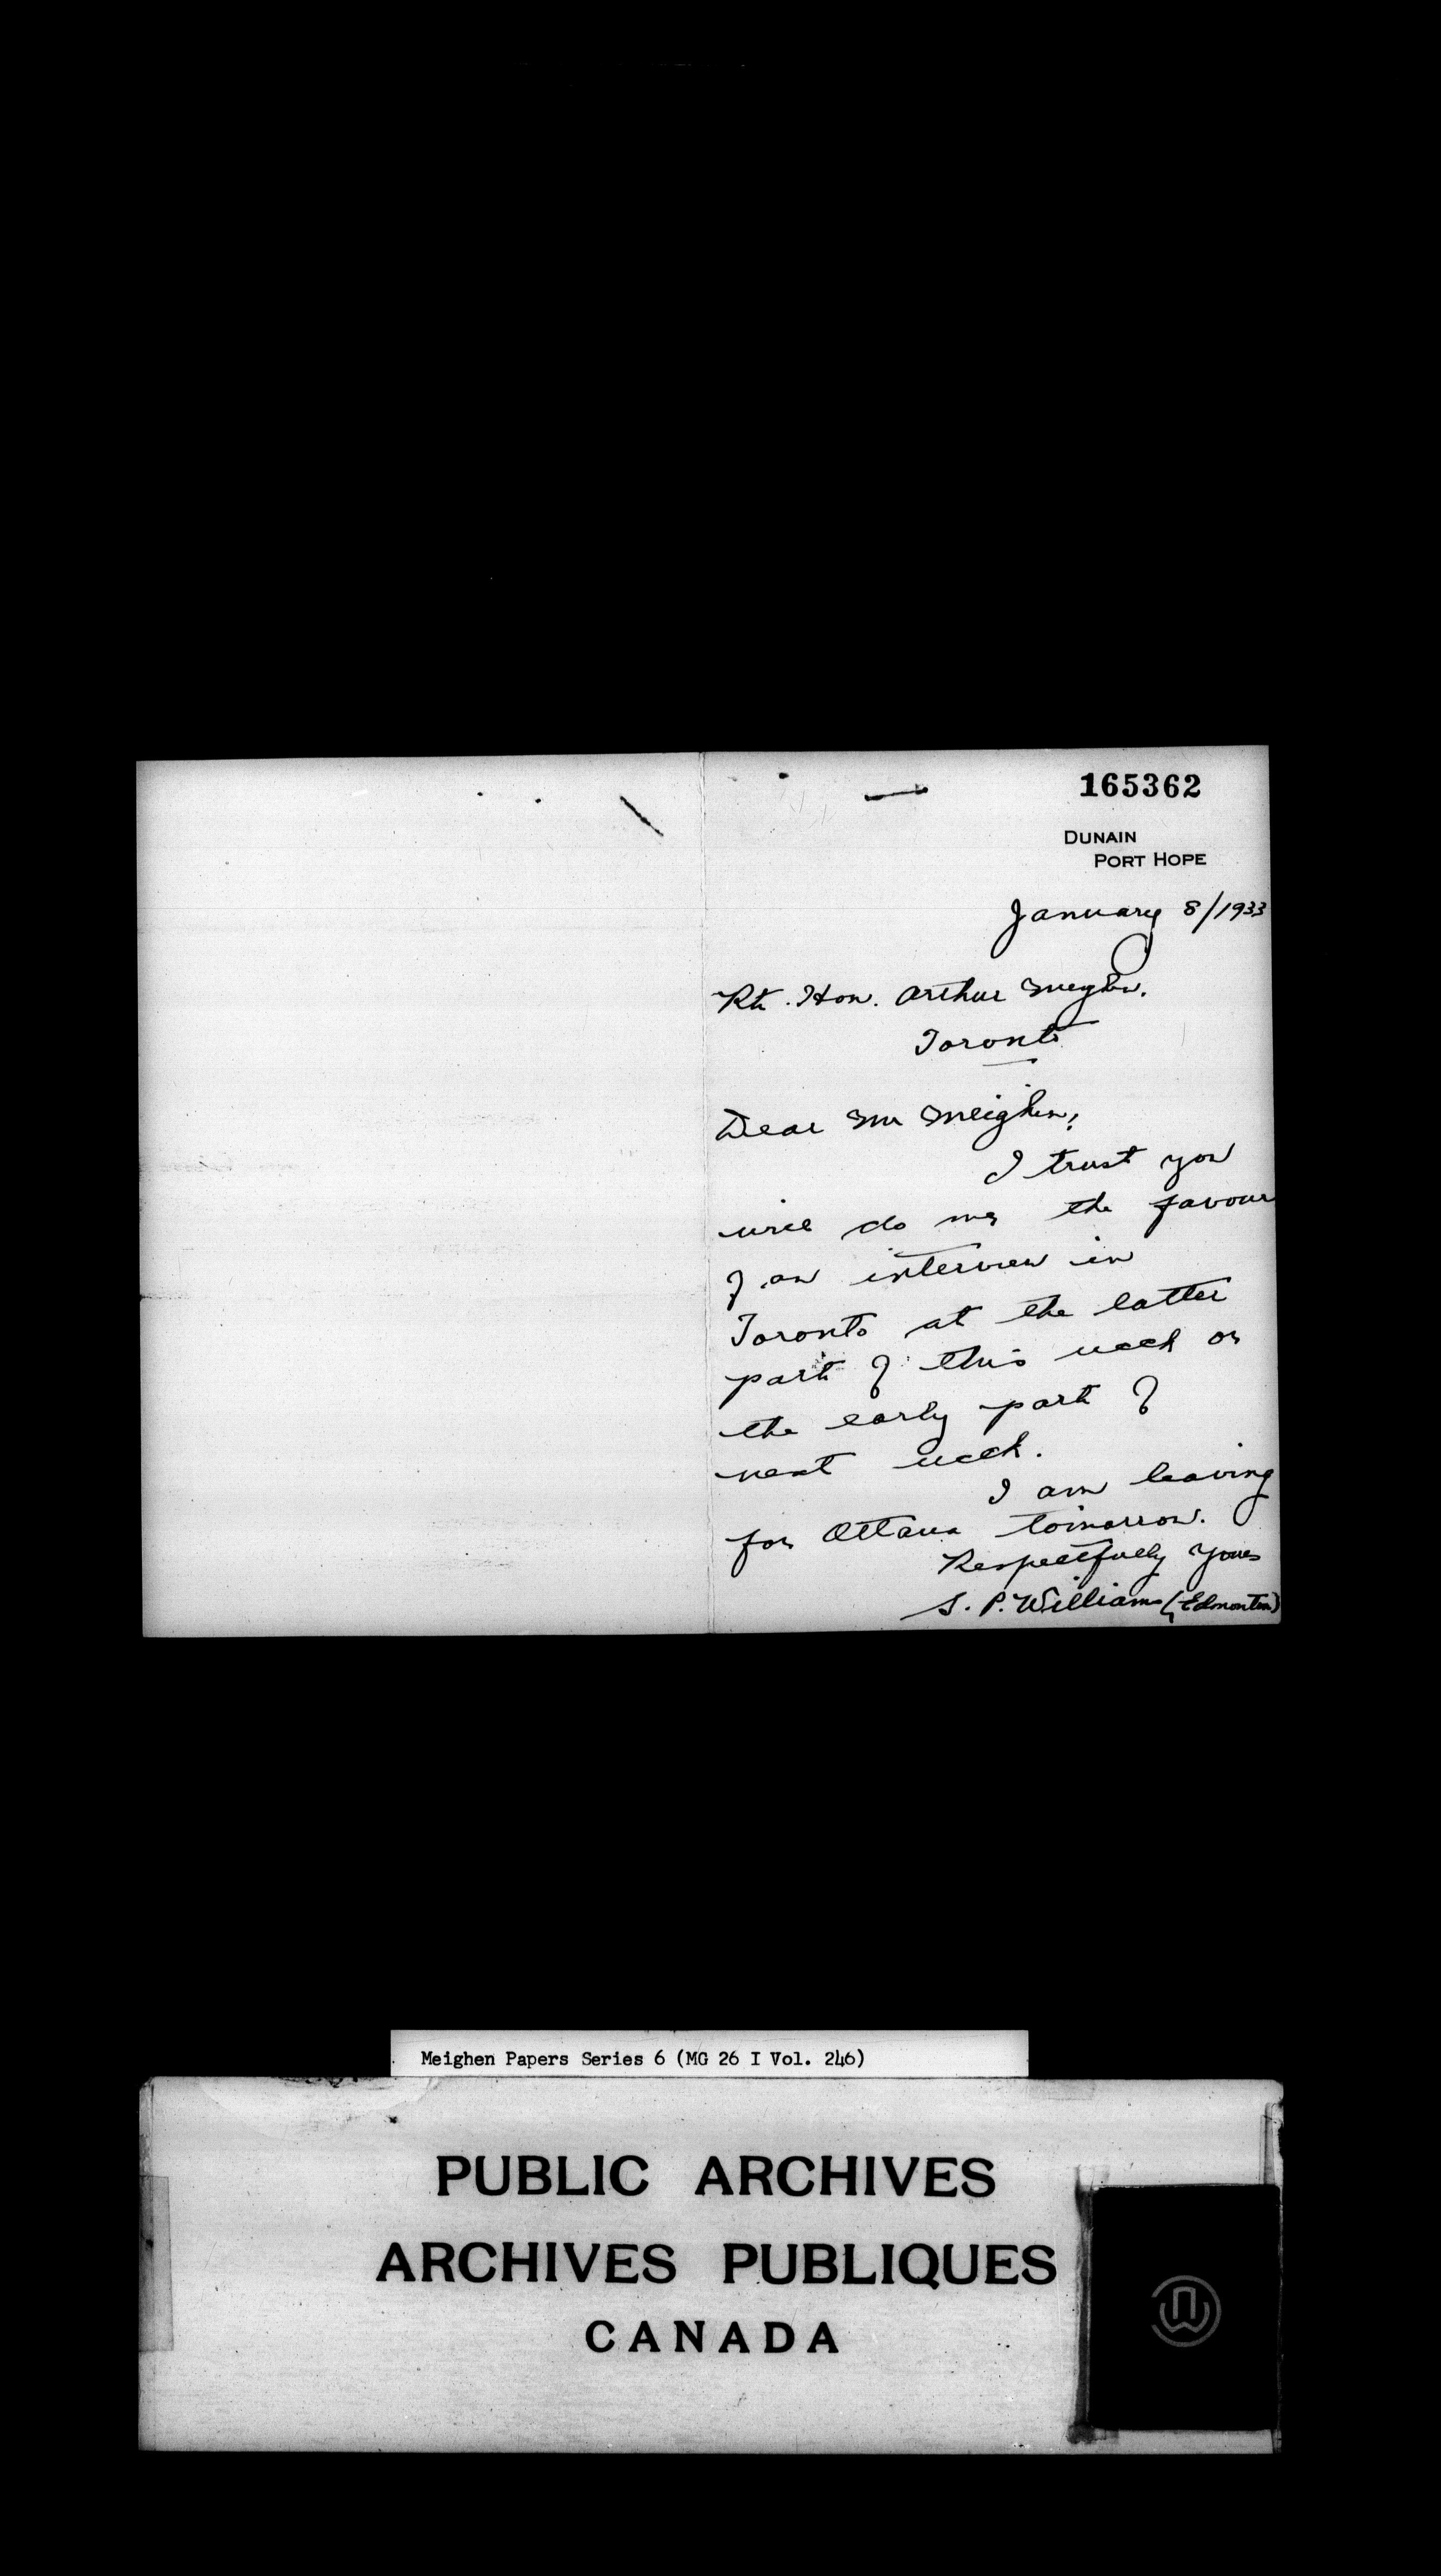 165362
DUNAIN
PORT HOPE
January 8/1933
Rt. Hon. Arthur Meighen.
Toronto
Dear Mr Meighen,
I trust you
will do me the favour
of an interview in
Toronto at the latter
part of this week or
the early part of
next week.
I am leaving
for Ottawa tomorrow.
Respectfully yours
S. P. Williams (Edmonton)
Meighen Papers Series 6 (MG 26 I Vol. 246)
PUBLIC ARCHIVES
ARCHIVES PUBLIQUES
CANADA